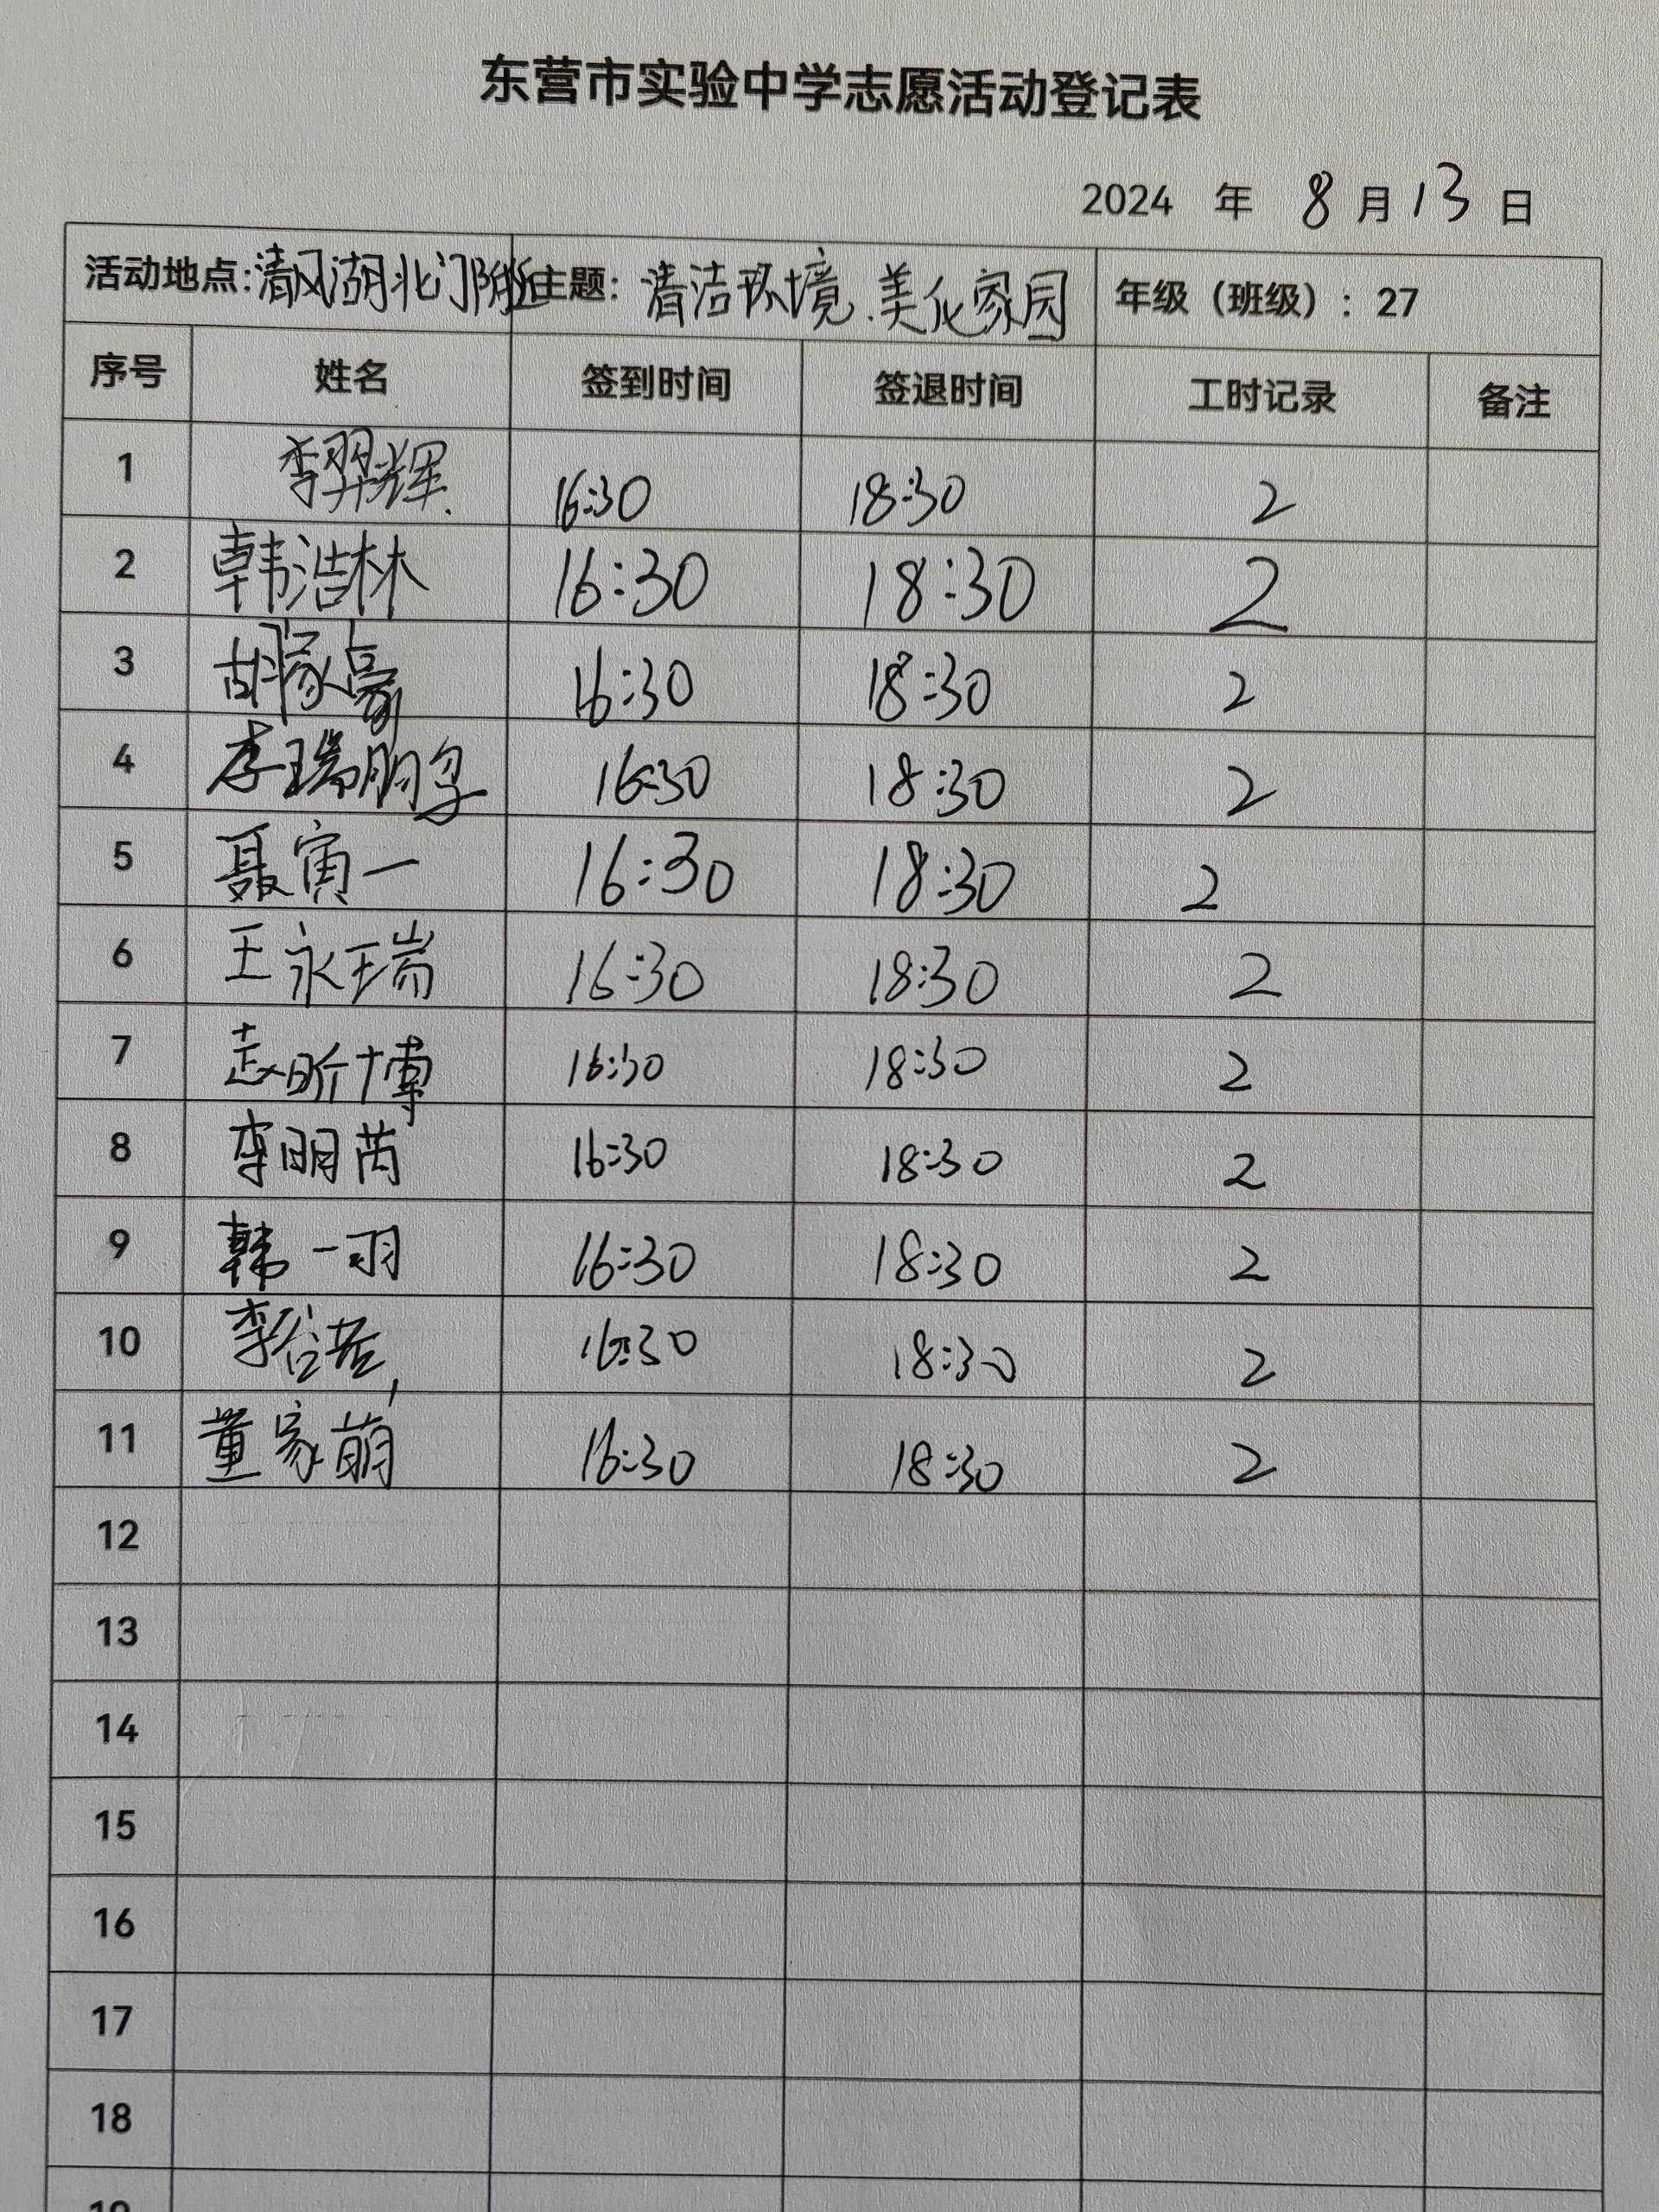 东营市实验中学志愿活动登记表
2024 年 8 月 13 日
活动地点:清风湖北门附近 主题: 清洁环境.美化家园 年级（班级）: 27
序号 姓名 签到时间 签退时间 工时记录 备注
1 李羿辉 16:30 18:30 2
2 韩浩林 16:30 18:30 2
3 胡家豪 16:30 18:30 2
4 16:30 18:30 2
5 聂寅一 16:30 18:30 2
6 王永瑞 16:30 18:30 2
7 赵昕博 16:30 18:30 2
8 李明芮 16:30 18:30 2
9 韩一羽 16:30 18:30 2
10 16:30 18:30 2
11 董家萌 16:30 18:30 2
12
13
14
15
16
17
18